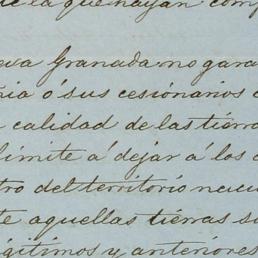 de la que hayan comp
eva Granada no gara
nia ó sus cesionarios
calidad de las tierra
límite á dejar á los
tro del territorio nacio
te aquellas tierras so
egítimos y anteriores